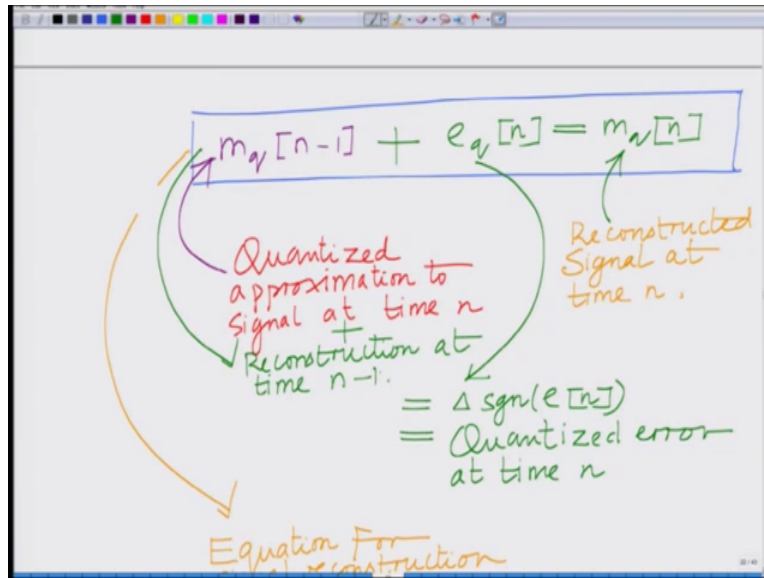 m_q [n-1] + e_q [n] = m_q [n]
Quantized
approximation to
signal at time n
+
Reconstruction at
time n-1.
Reconstructed
Signal at
time n.
= Δ sgn(e[n])
= Quantized error
at time n
Equation For
reconstruction